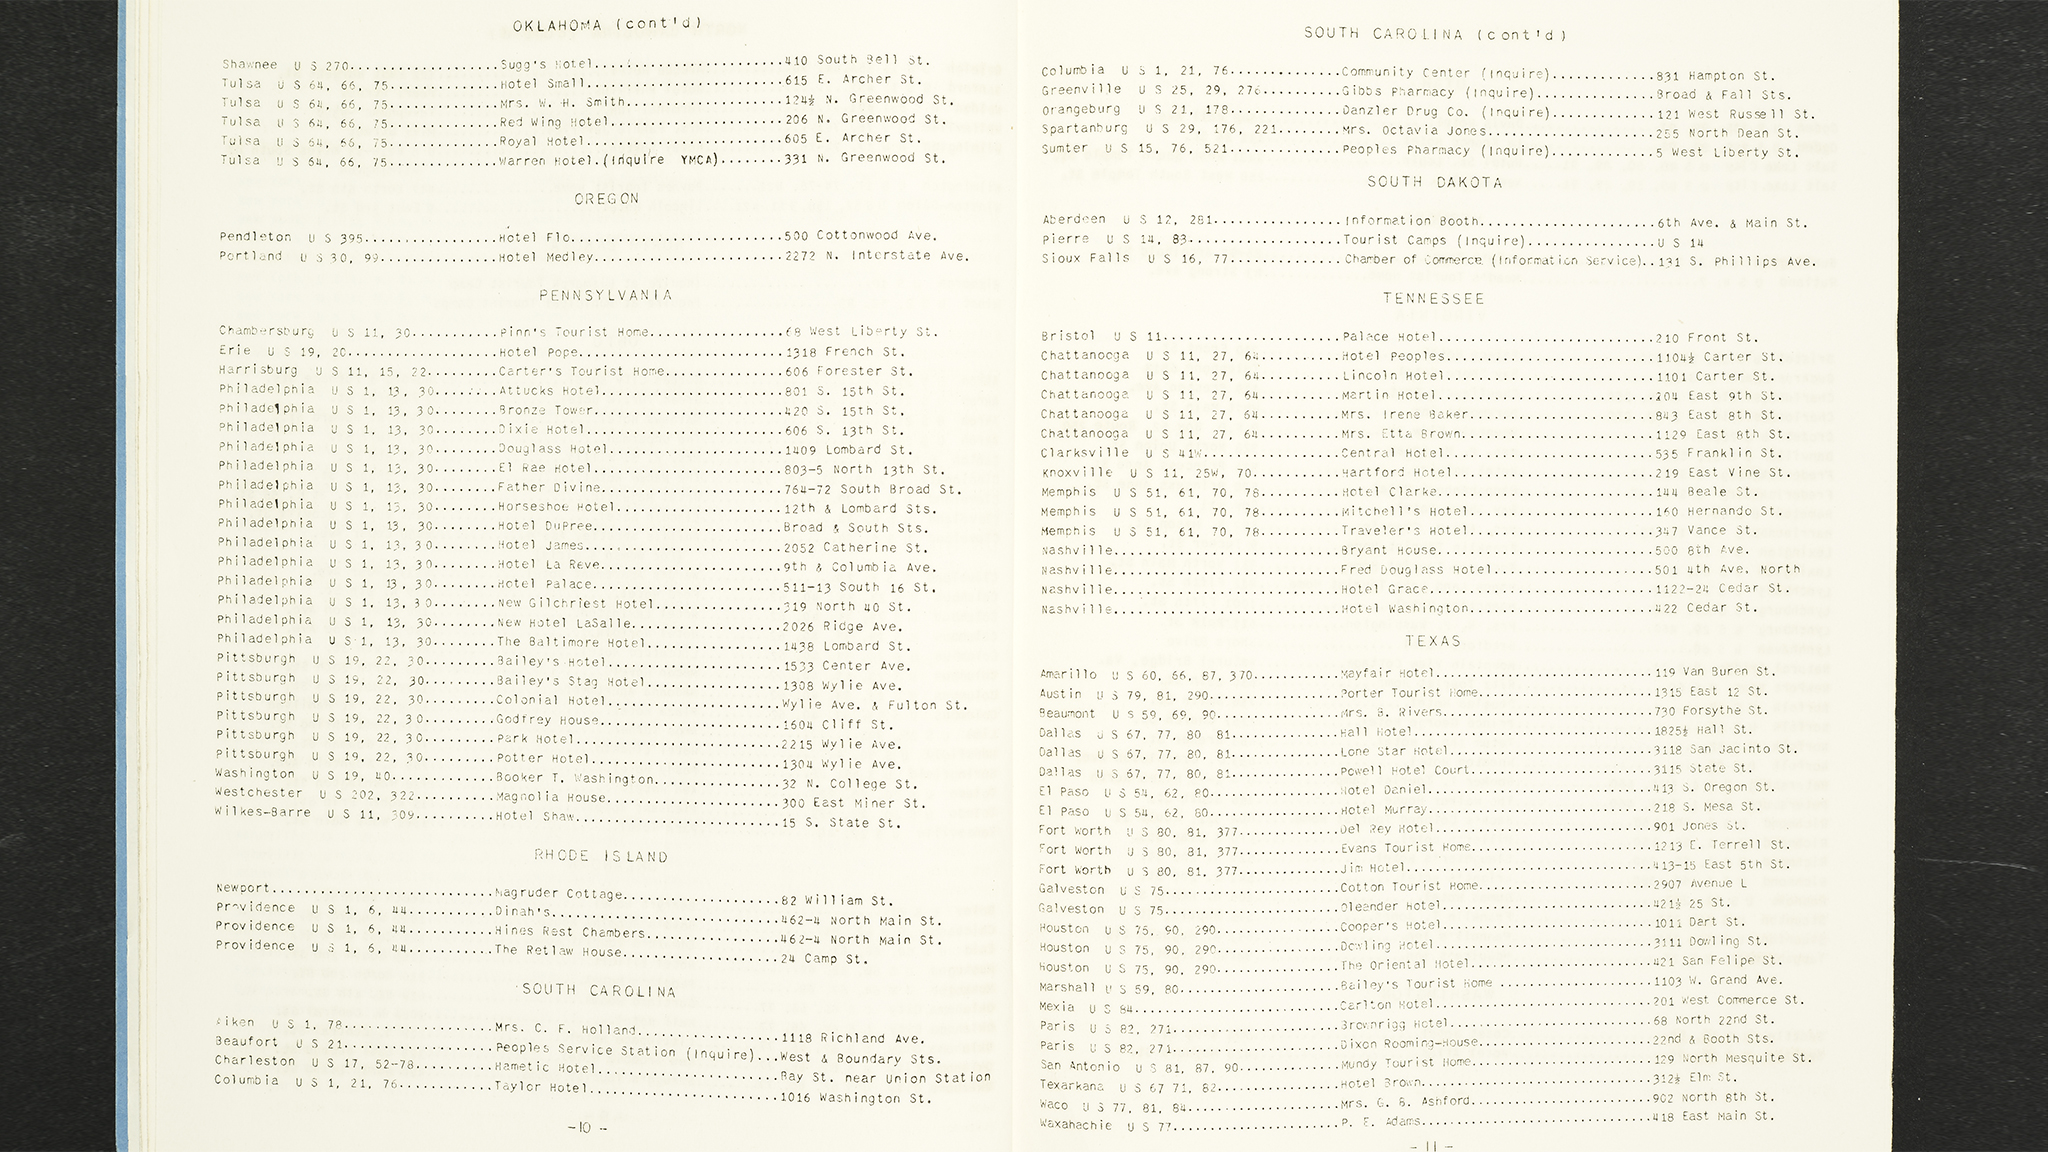 OKLAHOMA (cont'd)
Shawnee U S 270..................Sugg's Hotel........................410 South Bell St.
Tulsa U S 64, 66, 75.............Hotel Small.........................615 E. Archer St.
Tulsa U S 64, 66, 75.............Mrs. W. H. Smith....................124½ N. Greenwood St.
Tulsa U S 64, 66, 75.............Red Wing Hotel......................206 N. Greenwood St.
Tulsa U S 64, 66, 75.............Royal Hotel.........................605 E. Archer St.
Tulsa U S 64, 66, 75.............Warren Hotel.(Inquire YMCA)........331 N. Greenwood St.
OREGON
Pendleton U S 395................Hotel Flo...........................500 Cottonwood Ave.
Portland U S 30, 99..............Hotel Medley........................2272 N. Interstate Ave.
PENNSYLVANIA
Chambersburg U S 11, 30..........Pinn's Tourist Home.................68 West Liberty St.
Erie U S 19, 20..................Hotel Pope..........................1318 French St.
Harrisburg U S 11, 15, 22........Carter's Tourist Home...............606 Forester St.
Philadelphia U S 1, 13, 30.......Attucks Hotel.......................801 S. 15th St.
Philadelphia U S 1, 13, 30.......Bronze Tower........................420 S. 15th St.
Philadelphia U S 1, 13, 30.......Dixie Hotel.........................606 S. 13th St.
Philadelphia U S 1, 13, 30.......Douglass Hotel......................1409 Lombard St.
Philadelphia U S 1, 13, 30.......El Rae Hotel........................803-5 North 13th St.
Philadelphia U S 1, 13, 30.......Father Divine.......................764-72 South Broad St.
Philadelphia U S 1, 13, 30.......Horseshoe Hotel.....................12th & Lombard Sts.
Philadelphia U S 1, 13, 30.......Hotel DuPree........................Broad & South Sts.
Philadelphia U S 1, 13, 30.......Hotel James.........................2052 Catherine St.
Philadelphia U S 1, 13, 30.......Hotel La Reve.......................9th & Columbia Ave.
Philadelphia U S 1, 13, 30.......Hotel Palace........................511-13 South 16 St.
Philadelphia U S 1, 13, 30.......New Gilchriest Hotel................319 North 40 St.
Philadelphia U S 1, 13, 30.......New Hotel LaSalle...................2026 Ridge Ave.
Philadelphia U S 1, 13, 30.......The Baltimore Hotel.................1438 Lombard St.
Pittsburgh U S 19, 22, 30........Bailey's Hotel......................1533 Center Ave.
Pittsburgh U S 19, 22, 30........Bailey's Stag Hotel.................1308 Wylie Ave.
Pittsburgh U S 19, 22, 30........Colonial Hotel......................Wylie Ave. & Fulton St.
Pittsburgh U S 19, 22, 30........Godfrey House.......................1604 Cliff St.
Pittsburgh U S 19, 22, 30........Park Hotel..........................2215 Wylie Ave.
Pittsburgh U S 19, 22, 30........Potter Hotel........................1304 Wylie Ave.
Washington U S 19, 40............Booker T. Washington................32 N. College St.
Westchester U S 202, 322.........Magnolia House......................300 East Miner St.
Wilkes-Barre U S 11, 309.........Hotel Shaw..........................15 S. State St.
RHODE ISLAND
Newport..........................Magruder Cottage....................82 William St.
Providence U S 1, 6, 44..........Dinah's.............................462-4 North Main St.
Providence U S 1, 6, 44..........Hines Rest Chambers.................462-4 North Main St.
Providence U S 1, 6, 44..........The Retlaw House....................24 Camp St.
SOUTH CAROLINA
Aiken U S 1, 78..................Mrs. C. F. Holland..................1118 Richland Ave.
Beaufort U S 21..................Peoples Service Station (Inquire)...West & Boundary Sts.
Charleston U S 17, 52-78.........Hametic Hotel.......................Bay St. near Union Station
Columbia U S 1, 21, 76...........Taylor Hotel........................1016 Washington St.
-10 -
SOUTH CAROLINA (cont'd)
Columbia U S 1, 21, 76..............Community Center (Inquire).............831 Hampton St.
Greenville U S 25, 29, 276..........Gibbs Pharmacy (Inquire)...............Broad & Fall Sts.
Orangeburg U S 21, 178..............Danzler Drug Co. (Inquire).............121 West Russell St.
Spartanburg U S 29, 176, 221........Mrs. Octavia Jones.....................255 North Dean St.
Sumter U S 15, 76, 521..............Peoples Pharmacy (Inquire).............5 West Liberty St.
SOUTH DAKOTA
Aberdeen U S 12, 281................Information Booth......................6th Ave. & Main St.
Pierre U S 14, 83...................Tourist Camps (Inquire)................U S 14
Sioux Falls U S 16, 77..............Chamber of Commerce (Information Service)..131 S. Phillips Ave.
TENNESSEE
Bristol U S 11......................Palace Hotel...........................210 Front St.
Chattanooga U S 11, 27, 64..........Hotel Peoples..........................1104½ Carter St.
Chattanooga U S 11, 27, 64..........Lincoln Hotel..........................1101 Carter St.
Chattanooga U S 11, 27, 64..........Martin Hotel...........................204 East 9th St.
Chattanooga U S 11, 27, 64..........Mrs. Irene Baker.......................843 East 8th St.
Chattanooga U S 11, 27, 64..........Mrs. Etta Brown........................1129 East 8th St.
Clarksville U S 41W.................Central Hotel..........................535 Franklin St.
Knoxville U S 11, 25W, 70...........Hartford Hotel.........................219 East Vine St.
Memphis U S 51, 61, 70, 78..........Hotel Clarke...........................144 Beale St.
Memphis U S 51, 61, 70, 78..........Mitchell's Hotel.......................160 Hernando St.
Memphis U S 51, 61, 70, 78..........Traveler's Hotel.......................347 Vance St.
Nashville...........................Bryant House...........................500 8th Ave.
Nashville...........................Fred Douglass Hotel....................501 4th Ave. North
Nashville...........................Hotel Grace............................1122-24 Cedar St.
Nashville...........................Hotel Washington.......................422 Cedar St.
TEXAS
Amarillo U S 60, 66, 87, 370........Mayfair Hotel..........................119 Van Buren St.
Austin U S 79, 81, 290..............Porter Tourist Home....................1315 East 12 St.
Beaumont U S 59, 69, 90.............Mrs. B. Rivers.........................730 Forsythe St.
Dallas U S 67, 77, 80 81............Hall Hotel.............................1825½ Hall St.
Dallas U S 67, 77, 80, 81...........Lone Star Hotel........................3118 San Jacinto St.
Dallas U S 67, 77, 80, 81...........Powell Hotel Court.....................3115 State St.
El Paso U S 54, 62, 80..............Hotel Daniel...........................413 S. Oregon St.
El Paso U S 54, 62, 80..............Hotel Murray...........................218 S. Mesa St.
Fort Worth U S 80, 81, 377..........Del Rey Hotel..........................901 Jones St.
Fort Worth U S 80, 81, 377..........Evans Tourist Home.....................1213 E. Terrell St.
Fort Worth U S 80, 81, 377..........Jim Hotel..............................413-15 East 5th St.
Galveston U S 75....................Cotton Tourist Home....................2907 Avenue L
Galveston U S 75....................Oleander Hotel.........................421½ 25 St.
Houston U S 75, 90, 290.............Cooper's Hotel.........................1011 Dart St.
Houston U S 75, 90, 290.............Dowling Hotel..........................3111 Dowling St.
Houston U S 75, 90, 290.............The Oriental Hotel.....................421 San Felipe St.
Marshall U S 59, 80.................Bailey's Tourist Home .................1103 W. Grand Ave.
Mexia U S 84........................Carlton Hotel..........................201 West Commerce St.
Paris U S 82, 271...................Brownrigg Hotel........................68 North 22nd St.
Paris U S 82, 271...................Dixon Rooming-House....................22nd & Booth Sts.
San Antonio U S 81, 87, 90..........Mundy Tourist Home.....................129 North Mesquite St.
Texarkana U S 67 71, 82.............Hotel Brown............................312½ Elm St.
Waco U S 77, 81, 84.................Mrs. G. B. Ashford.....................902 North 8th St.
Waxahachie U S 77...................P. E. Adams............................418 East Main St.
- 11 -